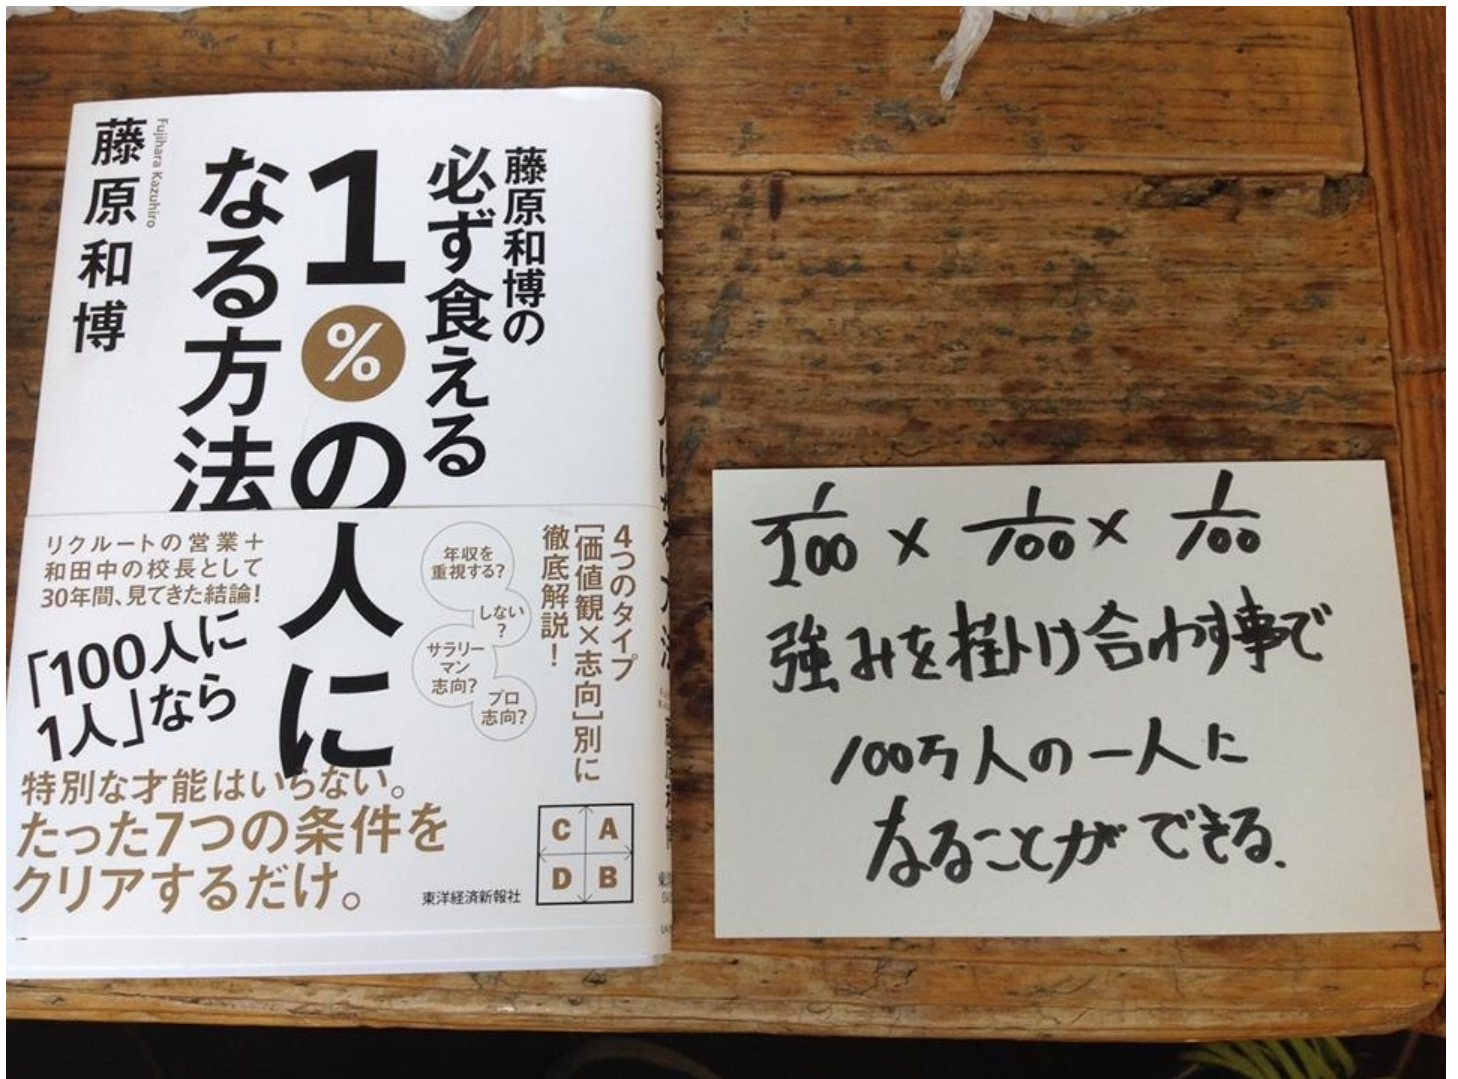 藤原和博の
必ず食える
1%の人に
なる方法
藤原和博
Fujihara Kazuhiro
4つのタイプ
[価値観×志向]別に
徹底解説!
年収を
重視する?
しない
?
サラリー
マン
志向?
プロ
志向?
リクルートの営業+
和田中の校長として
30年間、見てきた結論!
「100人に
1人」なら
特別な才能はいらない。
たった7つの条件を
クリアするだけ。
東洋経済新報社
C A
D B
1/100 × 1/100 × 1/100
強みを掛け合わす事で
100万人の一人に
なることができる.